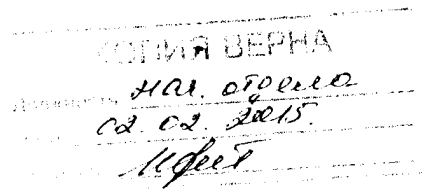 КОПИЯ ВЕРНА
Должность нач. отдела
02.02.2015.